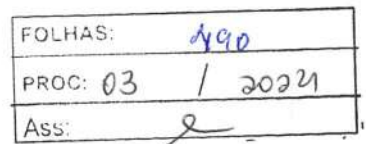 FOLHAS:
PROC: 03 / 2024
Ass: